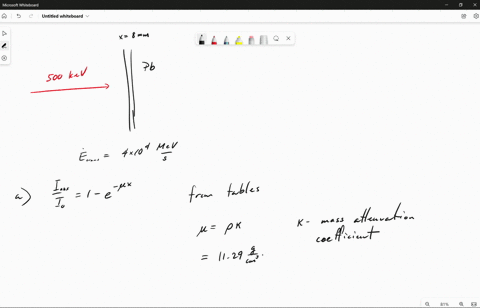 Microsoft Whiteboard
Untitled whiteboard
x = 8 mm
500 keV
Pb
= 4×10⁴ MeV/s
a) = 1 - e^{-μx}
from tables
μ = ρK
K - mass attenuation
coefficient
= 11.29 g/cm³.
81%